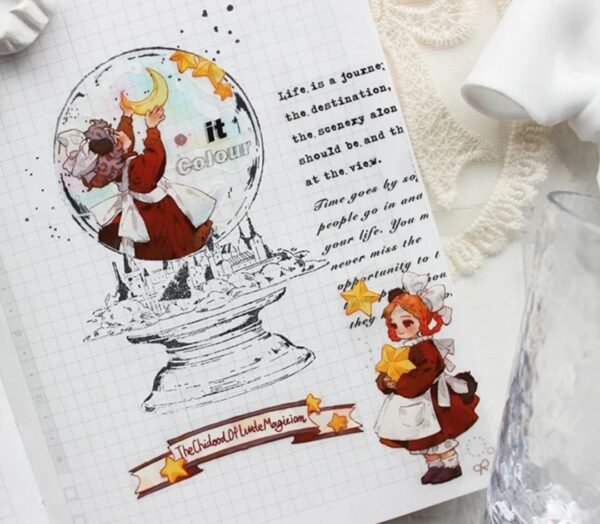 it
Colour
Life is a journe
the destination,
the scenery alon
should be and th
at the view.
Time goes by so
people go in and
your life. You m
never miss the
opportunity to t
they
TheChidoodOfLittleMagician